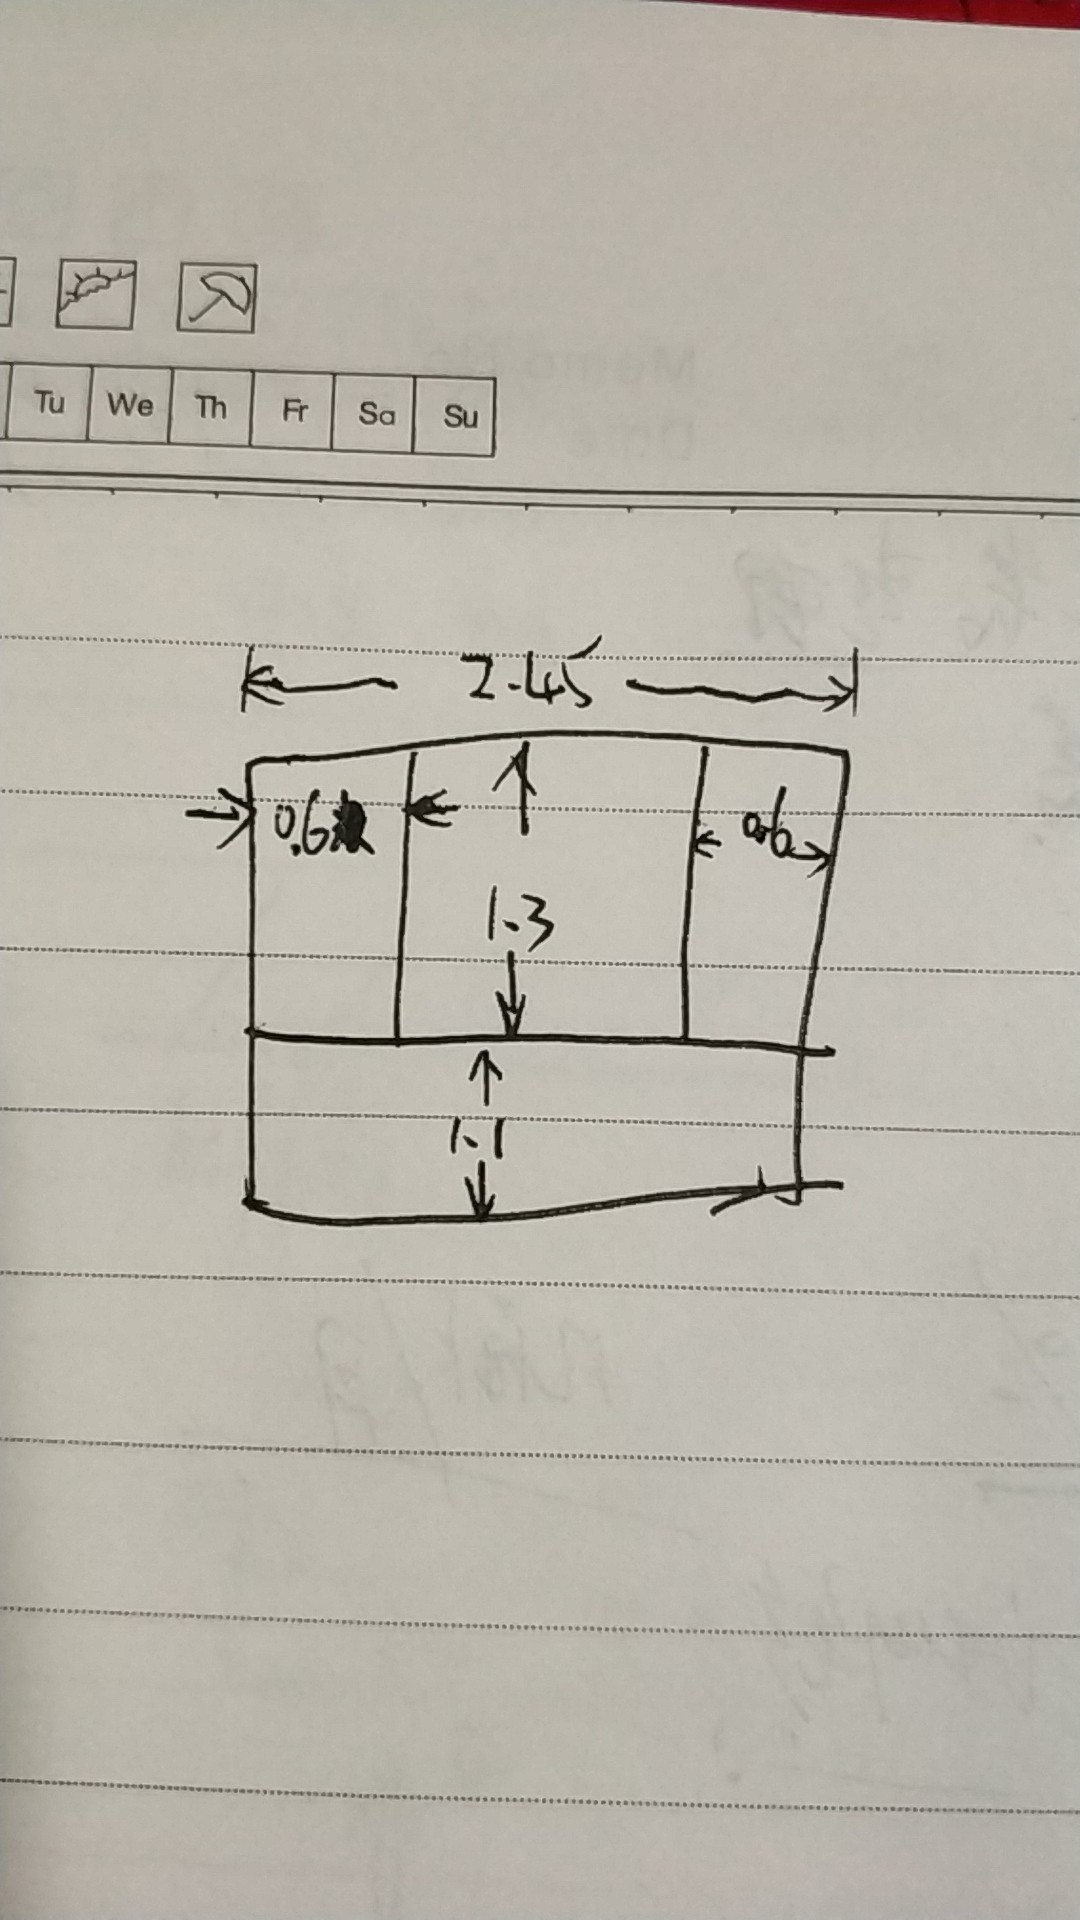 Tu We Th Fr Sa Su
2.45
0.6
0.6
1.3
1.1